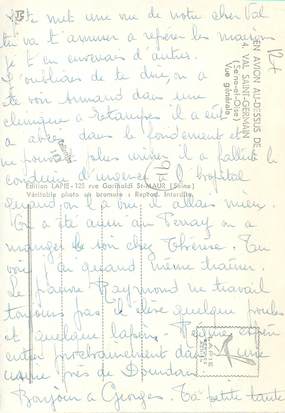 te met une vue de notre cher Val
tu va t'amuser a repérer les maisons
je t'en enverais d'autres.
J'oubliais de te dire, on a
été voir Armand dans une
clinique a Etampes il a eut
a abcès dans le fondement et
ne pouvait plus uriner il a fallut le
conduire d'urgence a l'hopital
quand on l'a vu, il allais mieux.
On a été aussi au Perray on a
manger le soir chez Thérèse. Tu
vois qu'on quand même traîner.
Le pauvre Raymond ne travail
toujours pas il élève quelque poules
et quelque lapins. Pierre espère
entrer prochainement dans une
usine près de Dourdan
Bonjour a Georges. Ta petite tante
EN AVION AU-DESSUS DE...
4. VAL SAINT-GERMAIN
(Seine-et-Oise)
Vue générale
Edition LAPIE - 125 rue Garibaldi St-MAUR (Seine)
Véritable photo au bromure : Reprod. Interdite
LAPIE